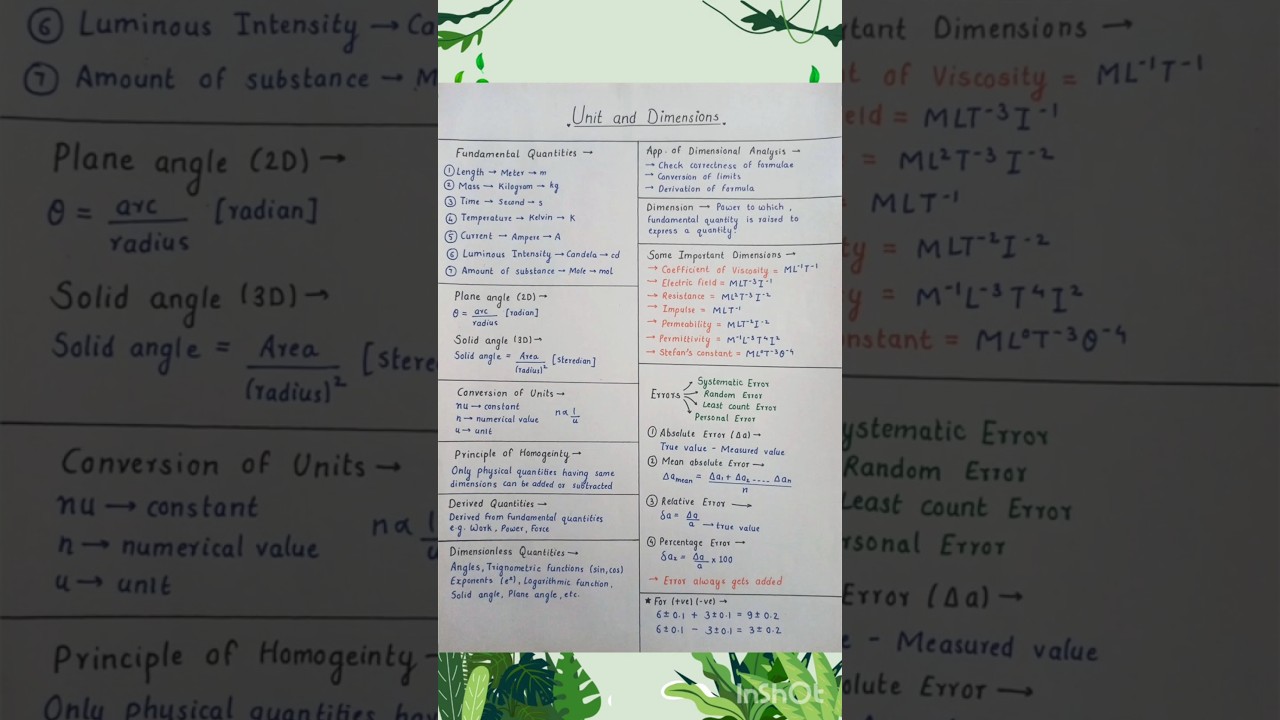 Unit and Dimensions
Fundamental Quantities →
① Length → Meter → m
② Mass → Kilogram → kg
③ Time → Second → s
④ Temperature → Kelvin → K
⑤ Current → Ampere → A
⑥ Luminous Intensity → Candela → cd
⑦ Amount of substance → Mole → mol
Plane angle (2D) →
θ = arc / radius [radian]
Solid angle (3D) →
Solid angle = Area / (radius)² [steredian]
Conversion of Units →
nu → constant
n → numerical value
u → unit
n ∝ 1/u
Principle of Homogeinty →
Only physical quantities having same
dimensions can be added or subtracted
Derived Quantities →
Derived from fundamental quantities
e.g. Work, Power, Force
Dimensionless Quantities →
Angles, Trignometric functions (sin, cos)
Exponents (eˣ), Logarithmic function,
Solid angle, Plane angle, etc.
App. of Dimensional Analysis →
→ Check correctness of formulae
→ Conversion of limits
→ Derivation of formula
Dimension → Power to which,
fundamental quantity is raised to
express a quantity.
Some Important Dimensions →
→ Coefficient of Viscosity = ML⁻¹T⁻¹
→ Electric field = MLT⁻³I⁻¹
→ Resistance = ML²T⁻³I⁻²
→ Impulse = MLT⁻¹
→ Permeability = MLT⁻²I⁻²
→ Permittivity = M⁻¹L⁻³T⁴I²
→ Stefan's constant = ML⁰T⁻³θ⁻⁴
Errors
Systematic Error
Random Error
Least count Error
Personal Error
① Absolute Error (Δa) →
True value - Measured value
② Mean absolute Error →
Δa mean = Δa₁ + Δa₂ .... Δaₙ / n
③ Relative Error →
δa = Δa / a → true value
④ Percentage Error →
δa% = Δa / a × 100
→ Error always gets added
* For (+ve) (-ve) →
6±0.1 + 3±0.1 = 9±0.2
6±0.1 - 3±0.1 = 3±0.2
InShOt